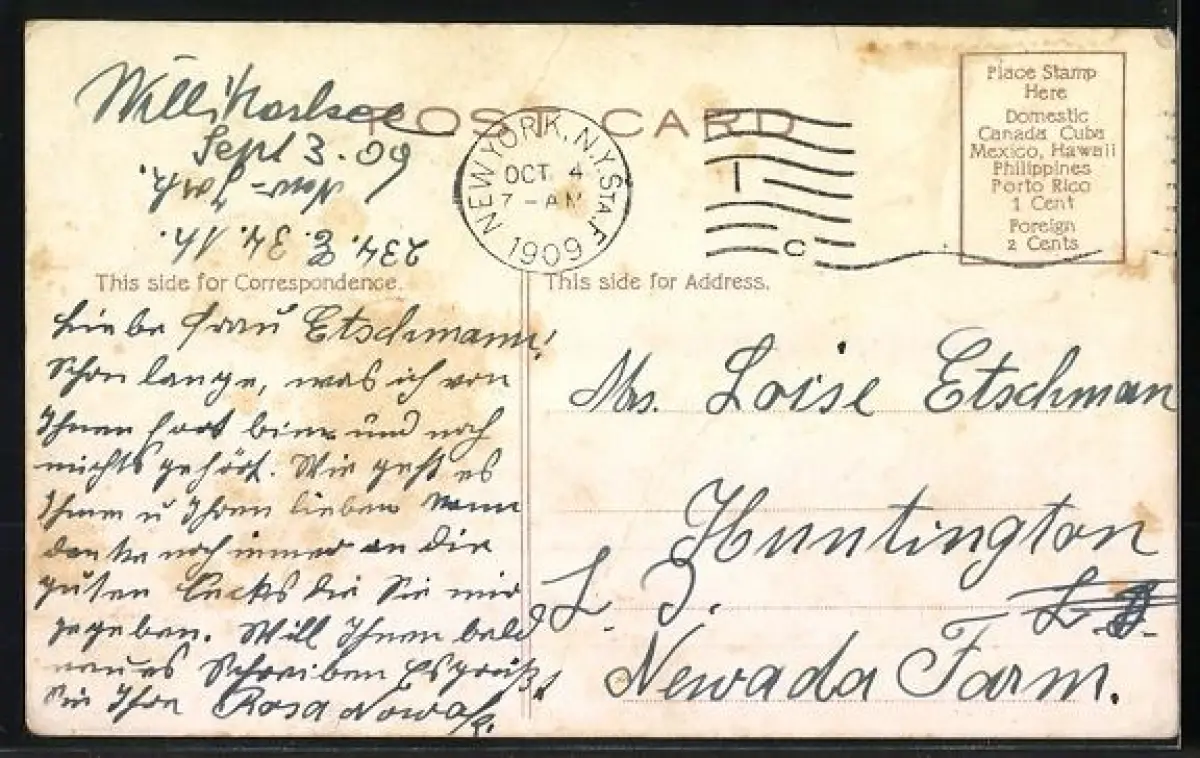 POST CARD
Sept 3. 09
New-York.
234. E. 34. Th.
NEW YORK, N.Y. STA. F
OCT 4
7-AM
1909
1
C
Place Stamp
Here
Domestic
Canada Cuba
Mexico, Hawaii
Philippines
Porto Rico
1 Cent
Foreign
2 Cents
This side for Correspondence.
This side for Address.
Liebe Frau Etschmann!
Schon lange, was ich von
Ihnen fort bin und noch
nichts gehört. Wie geht es
Ihnen u Ihren lieben Mann
denke noch immer an die
guten die Sie mir
gegeben. Will Ihnen bald
neues Schreiben Es grüßt
Sie Ihre Rosa Nowak.
Mrs. Loise Etschman
Huntington
L. I.
Newada Farm.